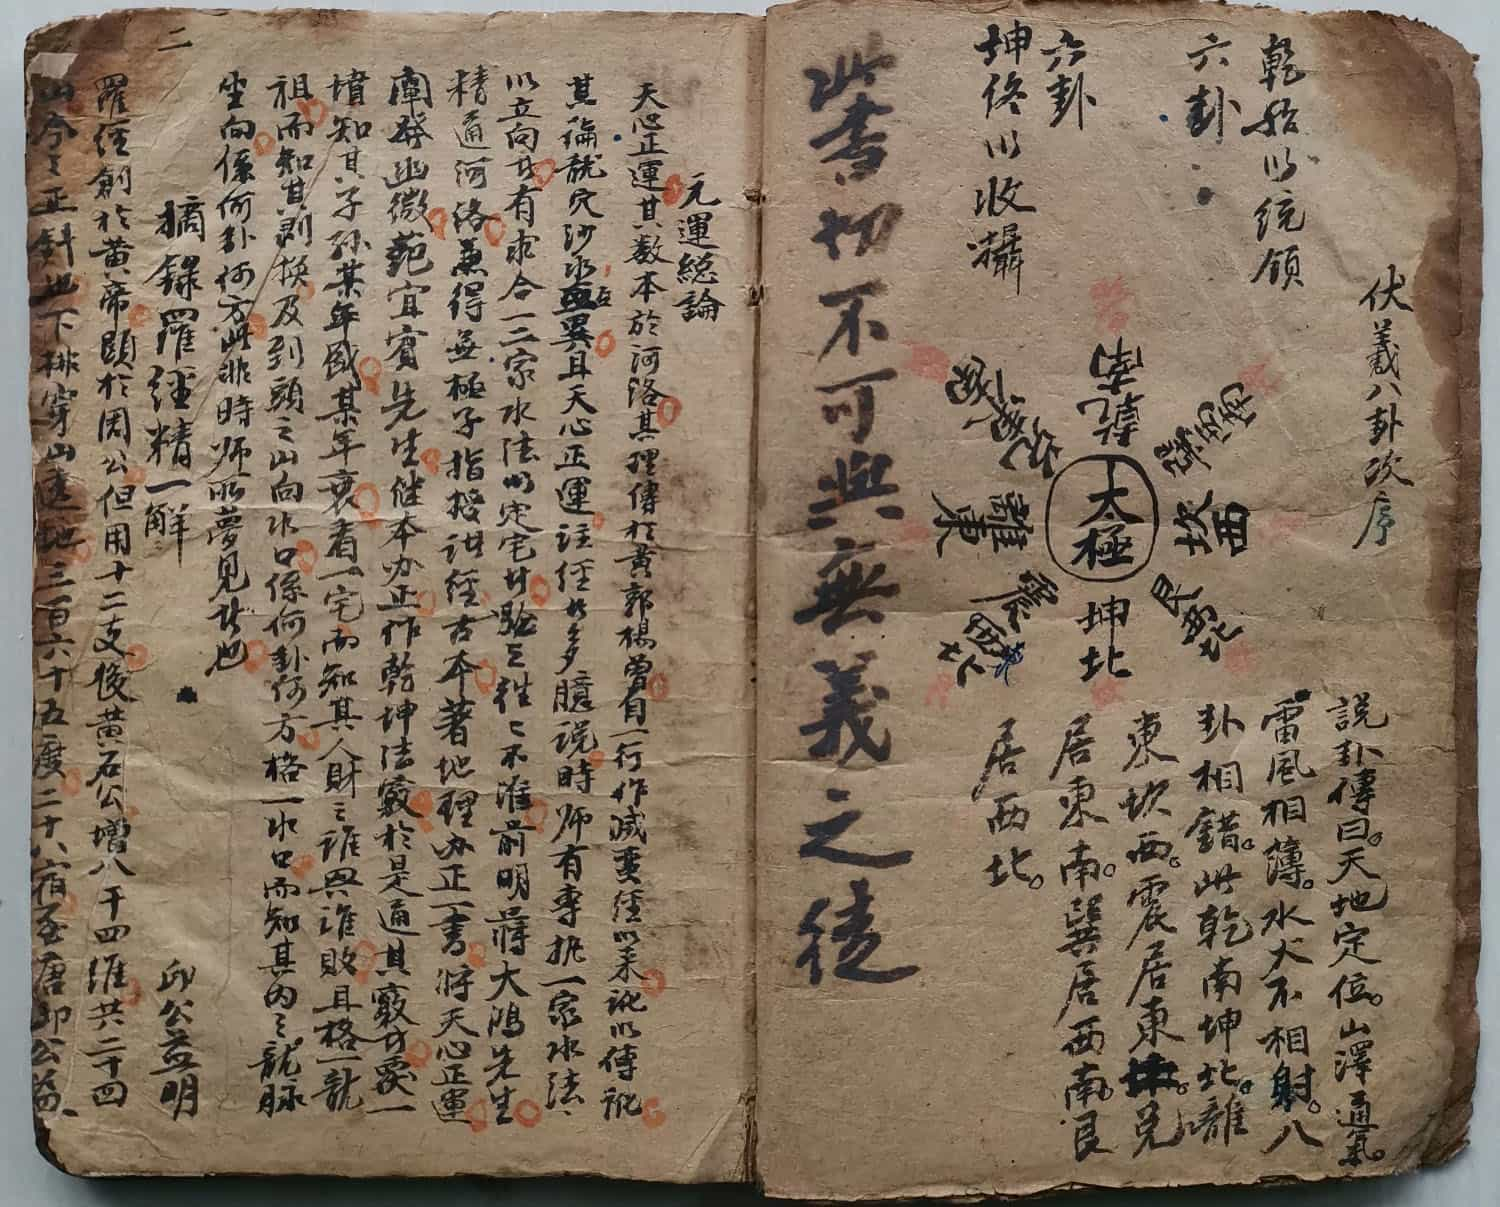 伏羲八卦次序
乾始以統領
六卦
六卦
坤終以收攝
南
乾
太極
坤北
離東
坎西
巽西南
震
說卦傳曰。天地定位。山澤通氣。
雷風相薄。水火不相射。八
卦相錯。此乾南坤北。離
東坎西。震居東北。兌
居東南。巽居西南。艮
居西北。
此書切不可與無義之徒
元運総論
天心正運其数本於河洛其理傳於黃郭楊曾自一行作滅蛮経以来訛以傳訛
其論龍穴沙水互異且天心正運註経者多臆說時师有專执一家水法
以立向者有求合一二家水法以定宅者驗之往々不准前明蔣大鴻先生
精通河洛兼得無極子指授註経古本著地理办正一書將天心正運
闡發幽微範宜賓先生继本办正作乾坤法竅於是通其竅者嚴一
墳知其子孫某年盛某年衰看一宅而知其人財之誰興誰敗且格一龍
祖而知其剥换及到頭之山向水口係何卦何方格一水口而知其內之龍脉
坐向係何卦何方此非時师所夢見者也
摘録羅经精一解　邱公益明
二
羅经創於黃帝顕於周公但用十二支後黃石公增八干四維共二十四
山今之正針也下排穿山透地三百六十五度二十八宿至唐邱公益